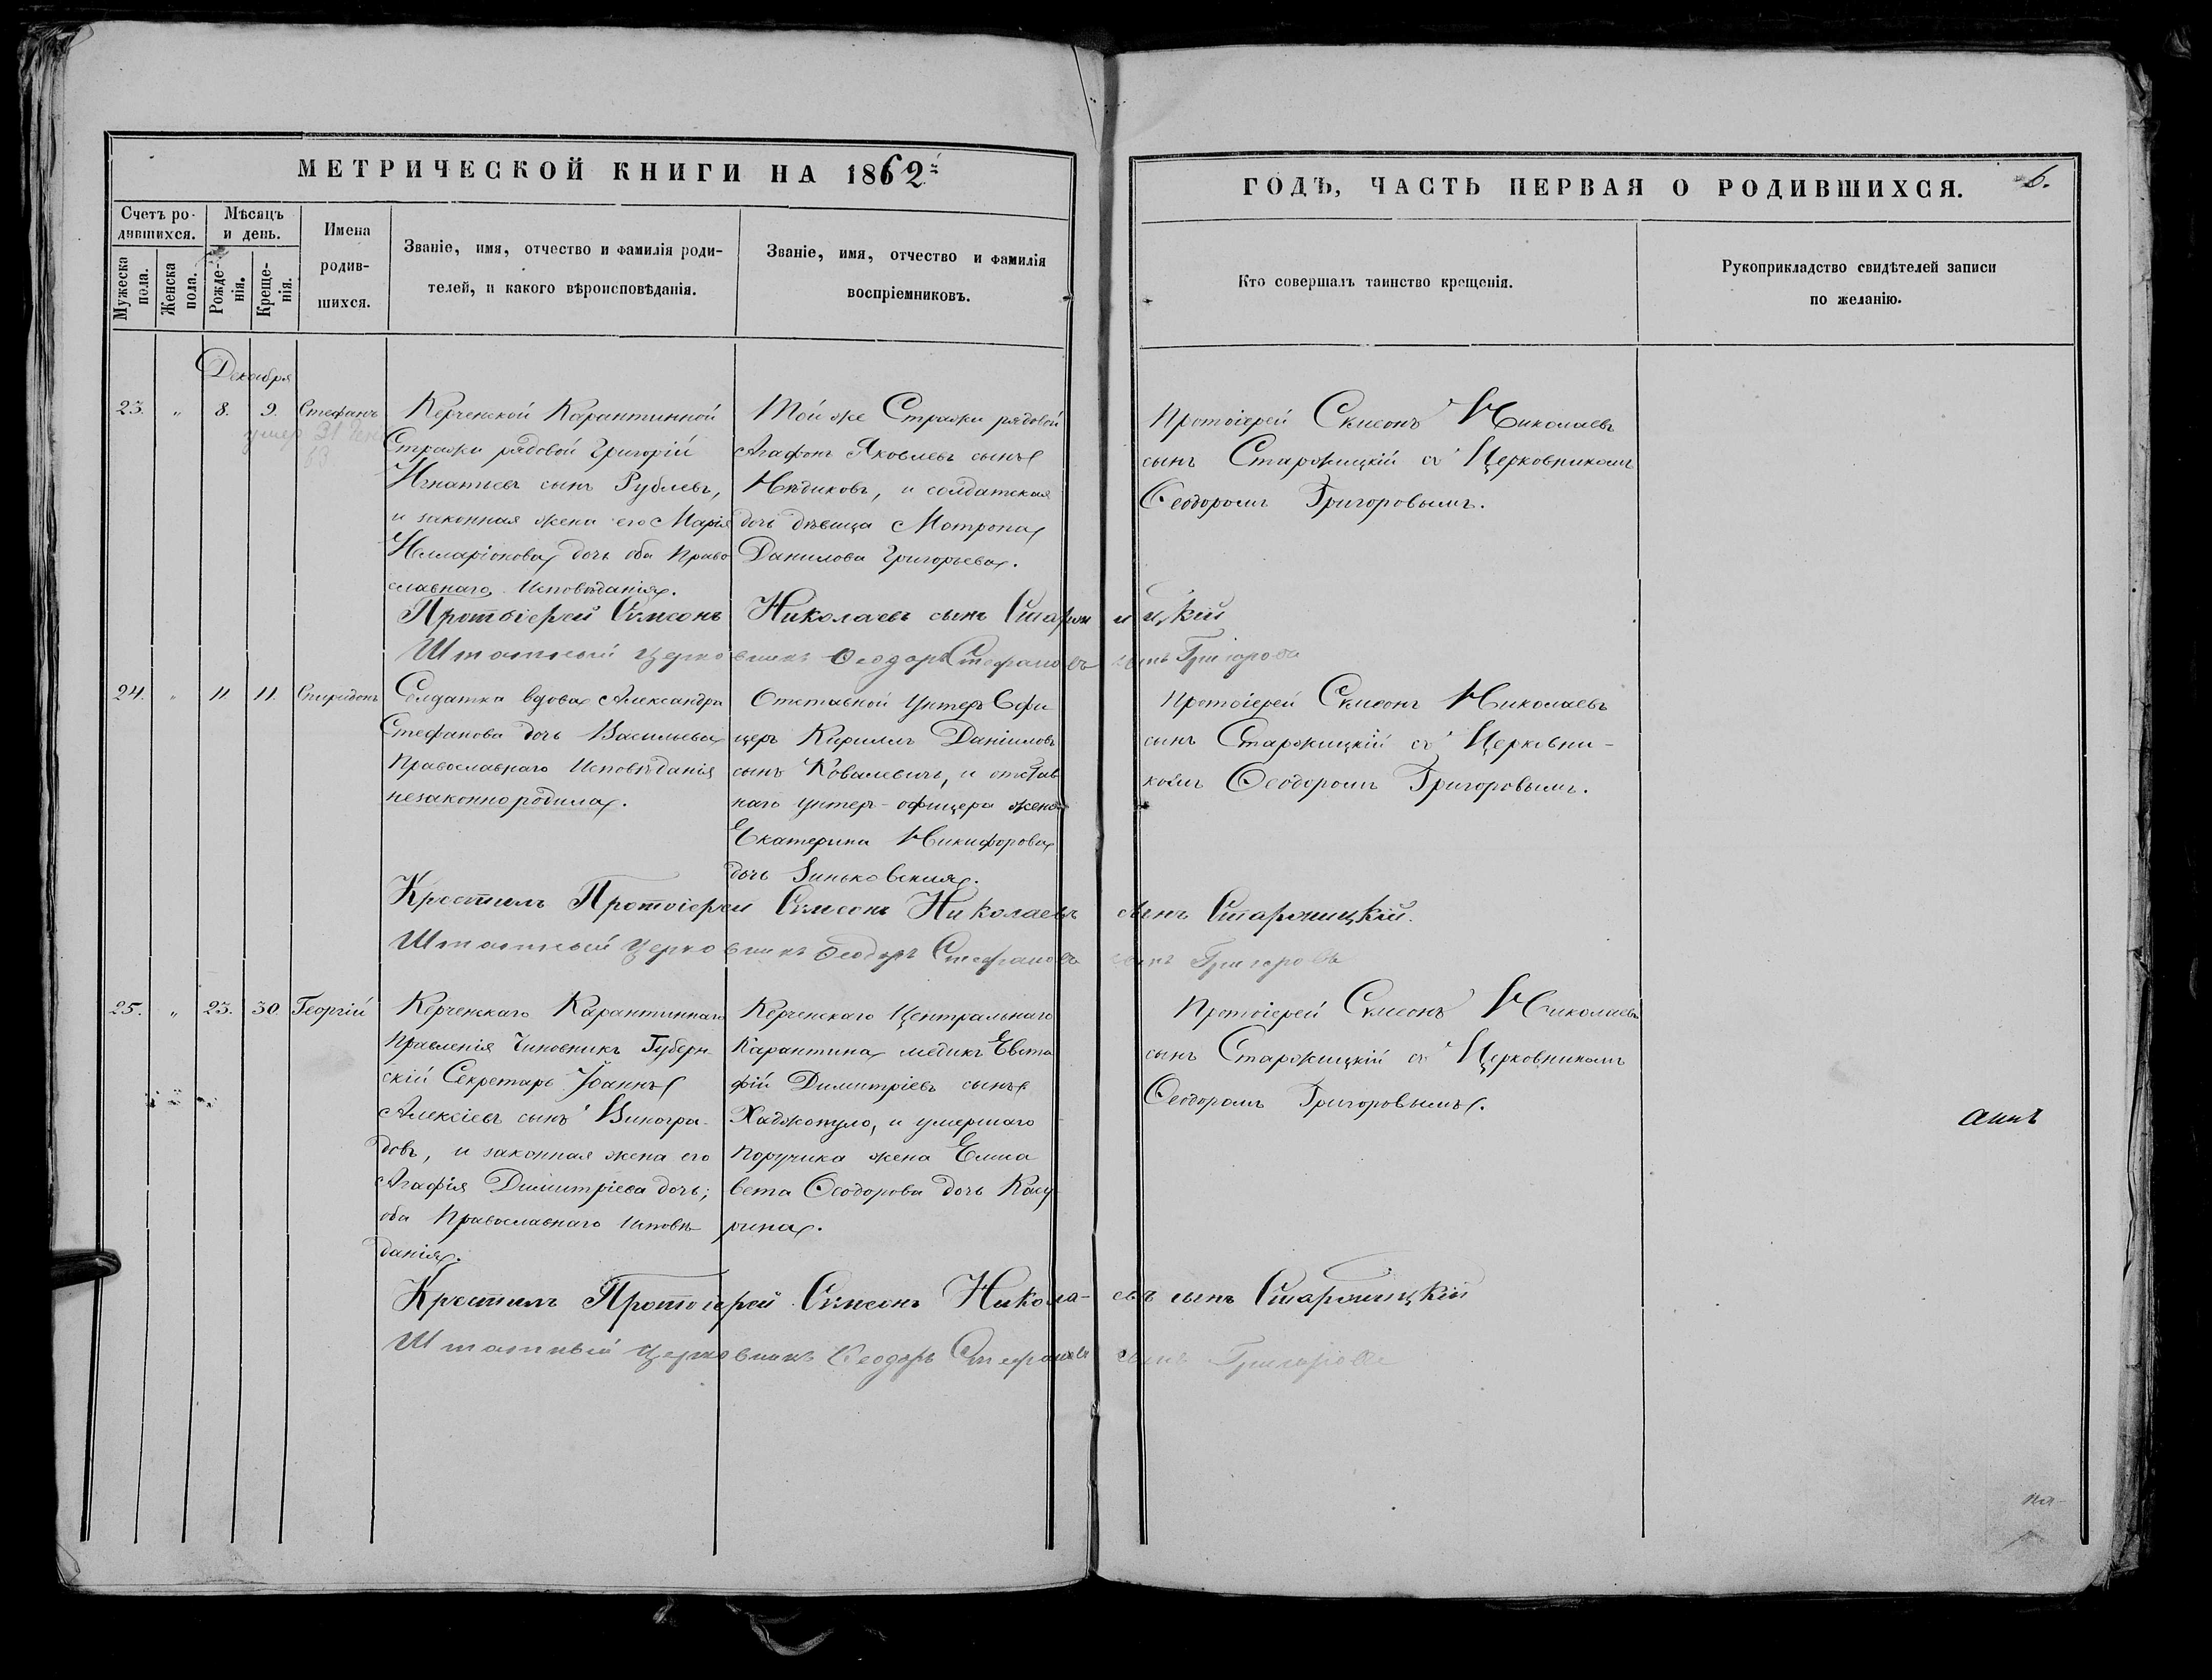 МЕТРИЧЕСКОЙ КНИГИ НА 1862й
ГОДЪ, ЧАСТЬ ПЕРВАЯ О РОДИВШИХСЯ.
6.
Счетъ ро-
дившихся.
Мѣсяцъ
и день.
Имена
родив-
шихся.
Мужеска
пола.
Женска
пола.
Рожде-
нія.
Креще-
нія.
Званіе, имя, отчество и фамилія роди-
телей, и какого вѣроисповѣданія.
Званіе, имя, отчество и фамилія
воспріемниковъ.
Кто совершалъ таинство крещенія.
Рукоприкладство свидѣтелей записи
по желанію.
Декабря
23. " 8. 9. Стефанъ
умер 31 Дек
Керченской Карантинной
Стражи рядовой Григорій
Игнатьевъ сынъ Рублевъ,
и законная жена его Марія
Илларіонова дочь оба Право
славнаго Исповѣданія.
Той же Стражи рядовой
Агафонъ Яковлевъ сынъ
и солдатская
дочь дѣвица Мотрона
Данилова Григорьева.
Протоіерей Сѵмеонъ Николаевъ
сынъ Старжицкій съ Церковникомъ
Ѳеодоромъ Григоровымъ.
Протоіерей Сѵмеонъ Николаевъ сынъ Старжицкій
Штатный Церковникъ Ѳеодоръ Стефановъ сынъ Григоровъ
24. " 11 11. Спиридонъ
Солдатка вдова Александра
Стефанова дочь Васильева
Православнаго Исповѣданія
незаконно родила.
Отставной Унтеръ Офи
церъ Кириллъ Даніиловъ
сынъ Ковалевичъ, и отстав
наго унтеръ-офицера жена
Екатерина Никифорова
дочь Зиньковская.
Протоіерей Сѵмеонъ Николаевъ
сынъ Старжицкій съ Церковни-
комъ Ѳеодоромъ Григоровымъ.
Крестилъ Протоіерей Сѵмеонъ Николаевъ сынъ Старжицкій.
Штатный Церковникъ Ѳеодоръ Стефановъ сынъ Григоровъ
25. " 23. 30. Георгій
Керченскаго Карантиннаго
Правленія Чиновникъ Губерн
скій Секретарь Іоаннъ
Алексіевъ сынъ Виногра-
довъ, и законная жена его
Агафія Димитріева дочь;
оба Православнаго Исповѣ
данія.
Керченскаго Центральнаго
Карантина медикъ Евста
фій Димитріевъ сынъ
Хаджопуло, и умершаго
Поручика жена Елиса
вета Ѳеодорова дочь
Протоіерей Сѵмеонъ Николаевъ
сынъ Старжицкій съ Церковникомъ
Ѳеодоромъ Григоровымъ.
Крестилъ Протоіерей Сѵмеонъ Никола-евъ сынъ Старжицкій
Штатный Церковникъ Ѳеодоръ Стефановъ сынъ Григоровъ